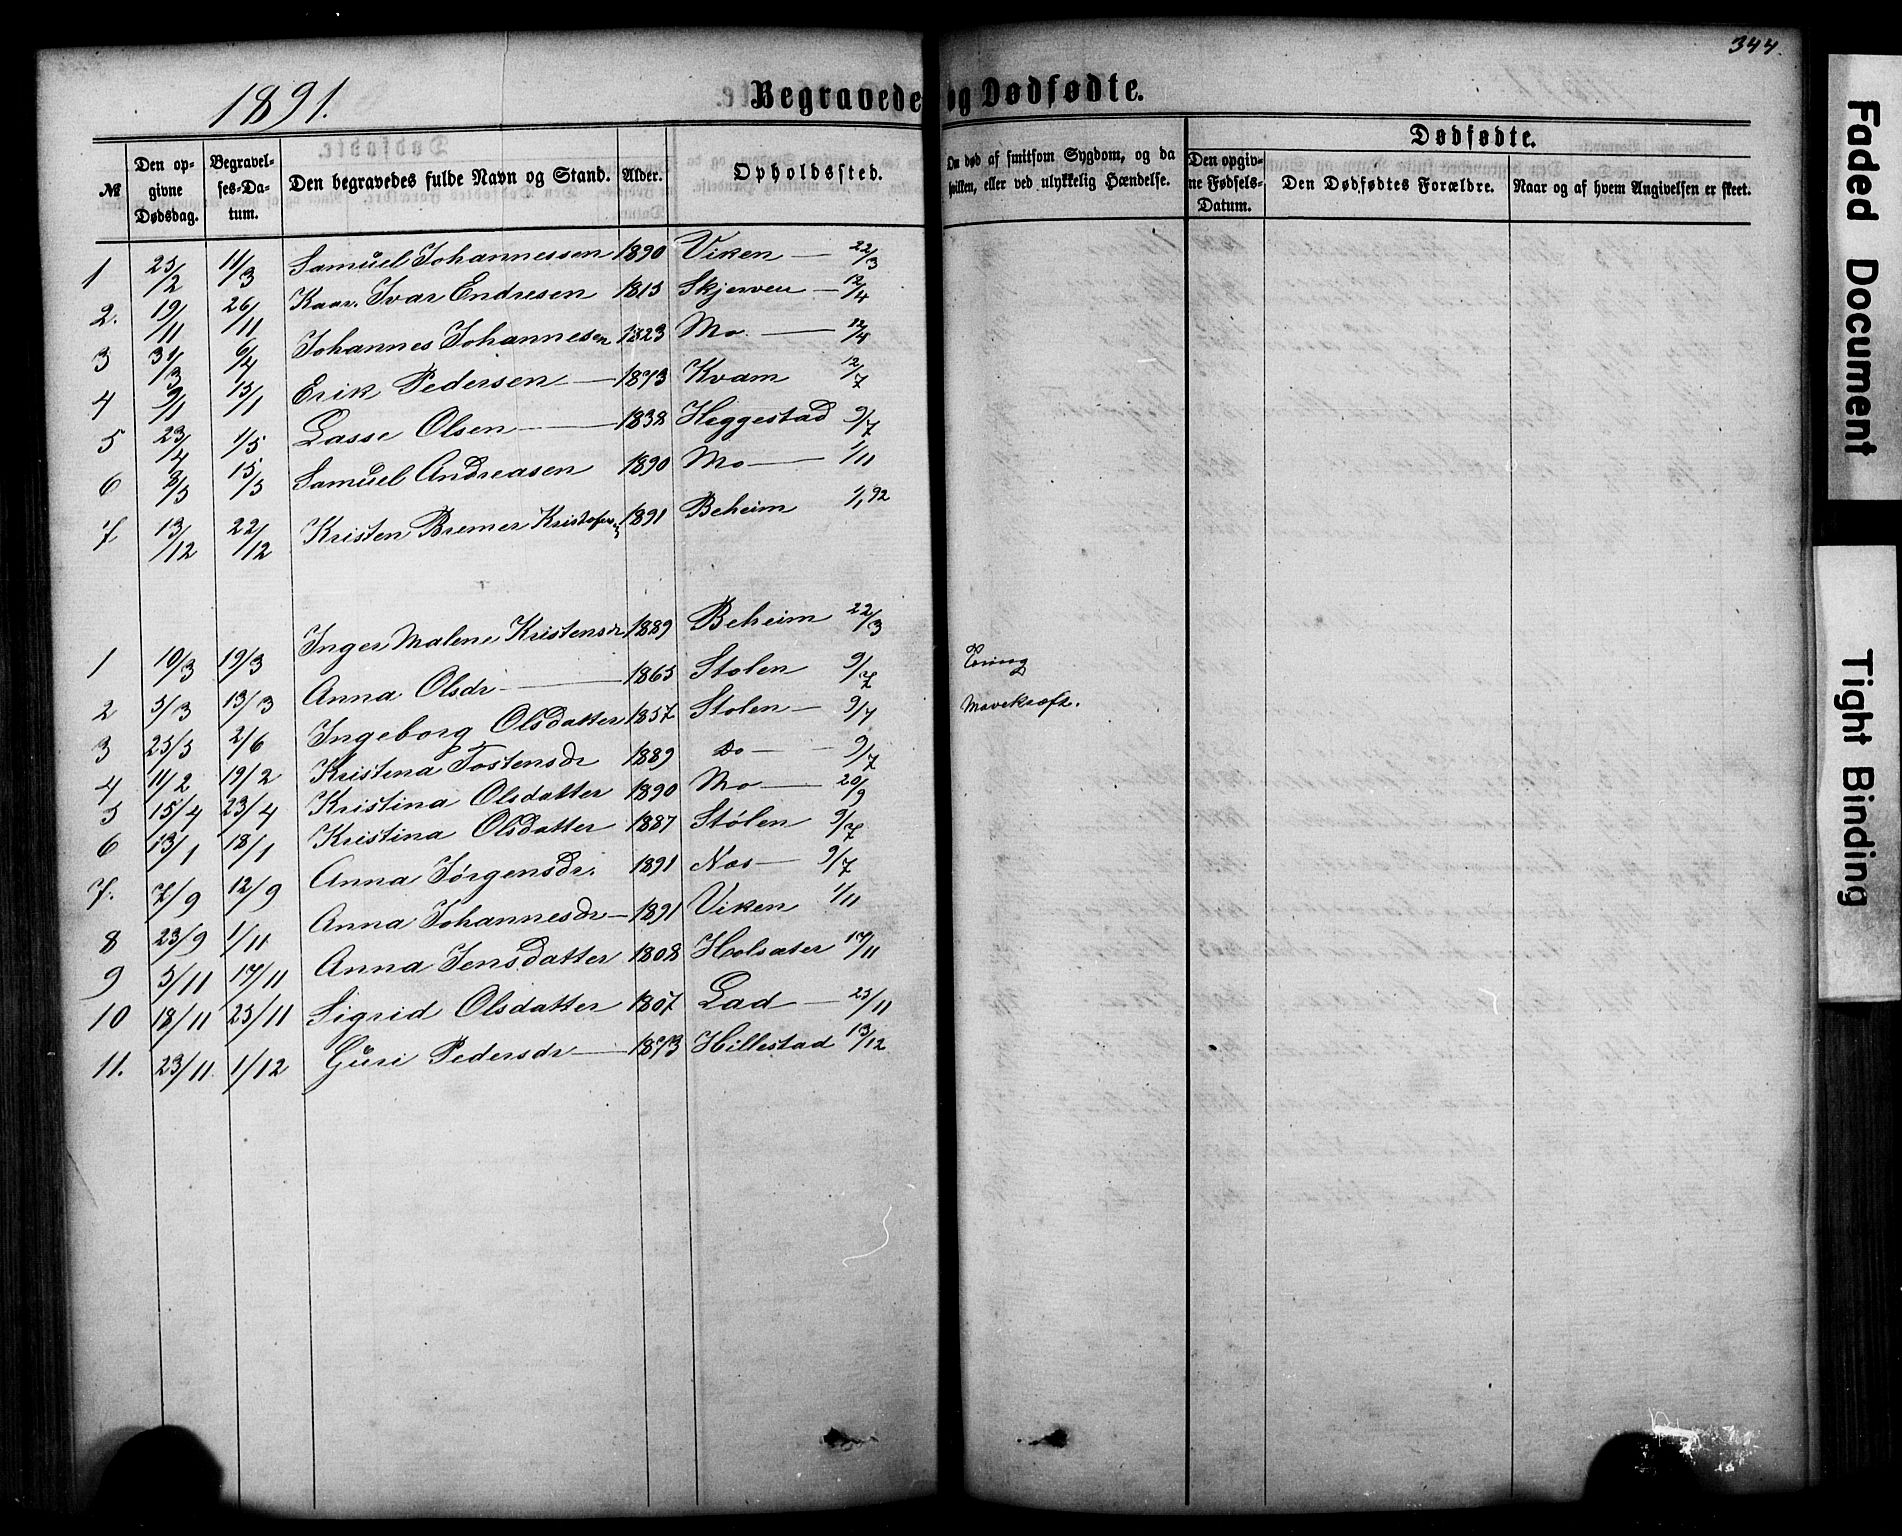 344.
1891.
Begravede og Dødfødte.
Dødfødte.
№ Den opgivne Dødsdag. Begravelses-Datum. Den begravedes fulde Navn og Stand. Alder. Opholdssted. Om død af smitsom Sygdom, og da hvilken, eller ved ulykkelig Hændelse. Den opgivne Fødsels-Datum. Den Dødfødtes Forældre. Naar og af hvem Angivelsen er skeet.
1 25/2 11/3 Samuel Johannessen 1890 Viken — 22/3
2. 19/11 26/11 Kaar. Ivar Endresen 1815 Skjerven — 12/4
3 31/3 6/4 Johannes Johannesen 1823 Mo. — 12/4
4 9/1 15/1 Erik Pedersen — 1873 Kvam 12/7
5 23/4 1/5 Lasse Olsen — 1838 Heggestad 9/7
6 8/5 15/5 Samuel Andreasen 1890 Mo — 1/11
7. 13/12 22/12 Kristen Bremer Kristofersen 1891 Beheim 1/1 92
1 10/3 19/3 Inger Malene Kristensdr 1889 Beheim 22/3
2 5/3 13/3 Anna Olsdr — 1865 Stolen 9/7
3 25/5 2/6 Ingeborg Olsdatter 1857 Stolen — 9/7 Mavekræft.
4 11/2 19/2 Kristina Tostensdr 1889 Do — 9/7
5 15/4 23/4 Kristina Olsdatter 1890 Mo — 20/9
6 13/1 18/1 Kristina Olsdatter 1887 Stølen 9/7
7. 7/9 12/9 Anna Jørgensdr. 1891 Nes — 9/7
8 23/9 1/11 Anna Johannesdr — 1891 Viken 1/11
9 5/11 17/11 Anna Jensdatter 1808 Holsater 17/11
10 18/11 25/11 Sigrid Olsdatter 1807 Lad — 25/11
11. 23/11 1/12 Guri Pedersdr — 1873 Hillestad 13/12
Faded Document
Tight Binding